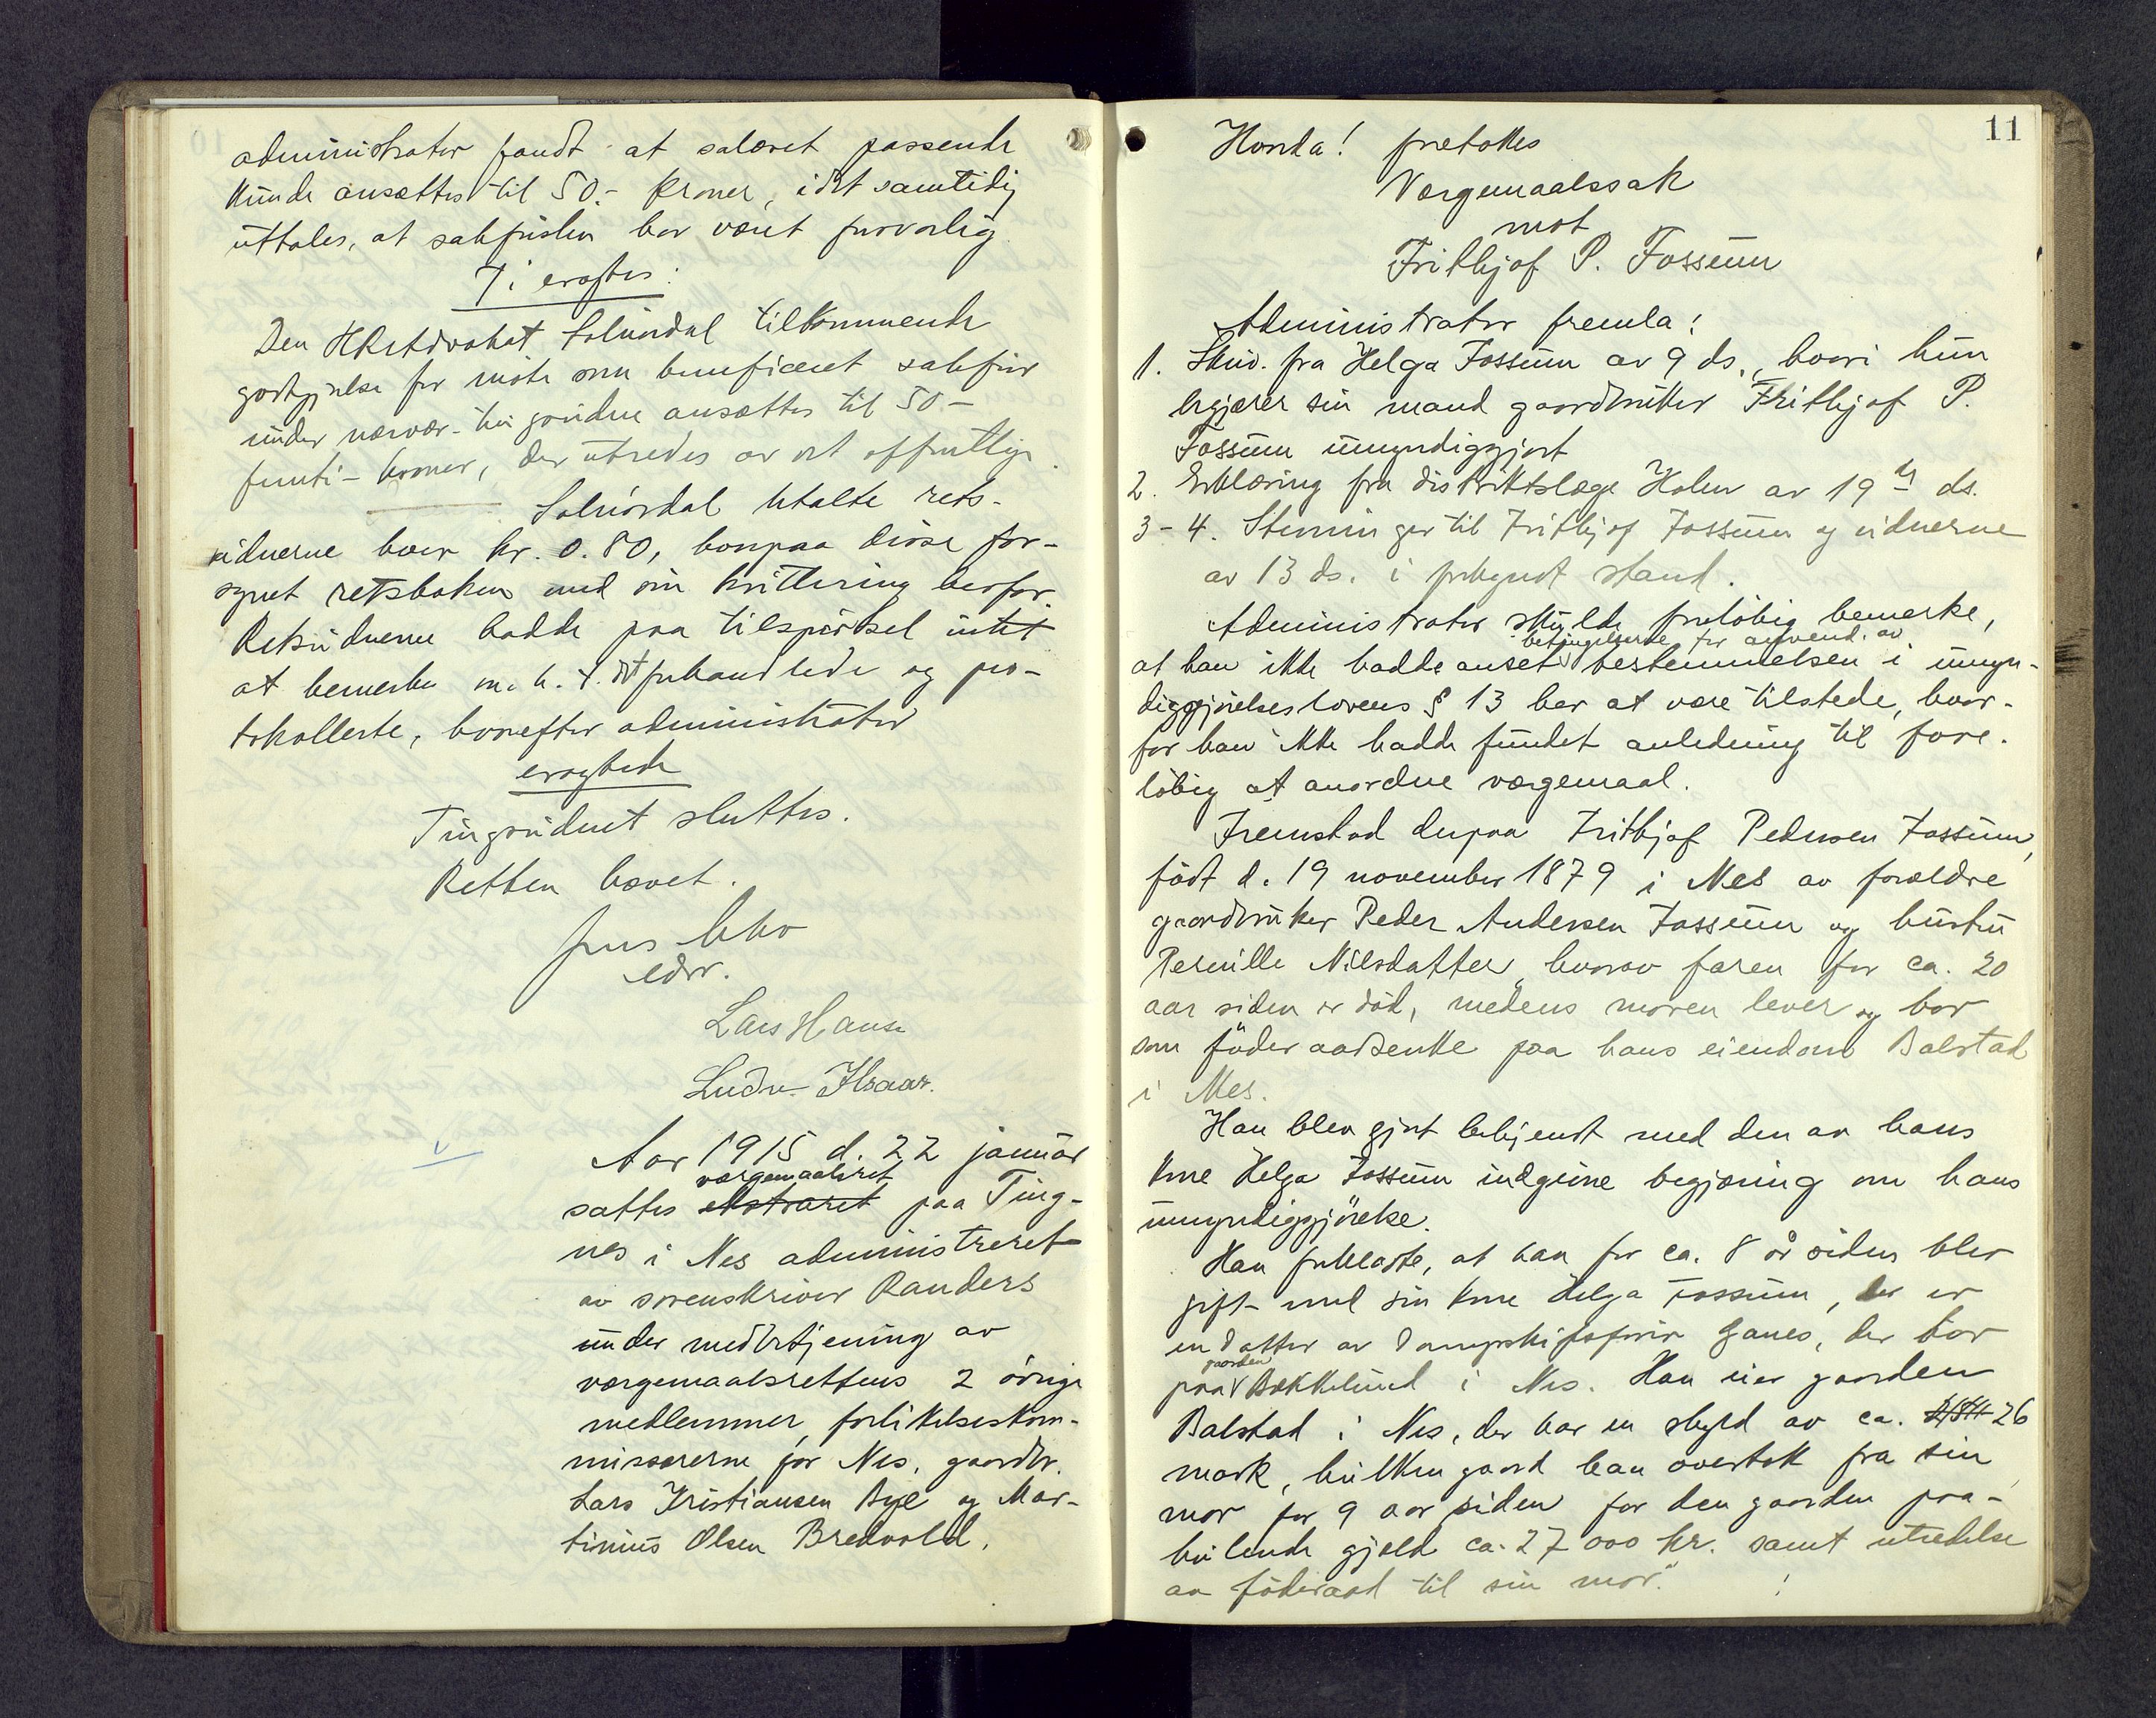 administrator fandt at salæret passende
kunde ansættes til 50.- kroner, idet samtidig
uttales, at sakførslen har været forsvarlig
Ti eragtes:
Den HRetsadvokat Solnördal tilkommende
godtgjørelse for møte som beneficeret sakfører
under nærvær- tingsvidne ansættes til 50-
femti- kroner, der utredes av det offentlige.
Solnördal betalte rets-
vidnerne hver kr. 0.80, hvorpaa disse for-
synet retsboken med sin kvittering herfor.
Retsvidnerne hadde paa tilspørsel intet
at bemerke m. h. t. det forhandlede og pro-
tokollerte, hvorefter administrator
eragtede
Tingsvidnet sluttes.
Retten hævet.
edsv.
Lars Hansen
Ludv.
Aar 1915 d. 22 januar
værgemaalsret
sattes ekstraret paa Ting-
nes i Nes administreret
av sorenskriver Randers
under medbetjening av
værgemaalsrettens 2 övrige
medlemmer, forlikelseskom-
missærerne for Nes, gaardbr.
Lars Kristiansen Bye og Mar-
tinius Olsen Bredvold.
11
Hvorda! foretokes
Værgemaalssak
mot
Frithjof P. Fossum
Administrator fremla:
1. Skriv. fra Helga Fossum av 9 ds., hvori hun
begjærer sin mand gaardbruker Frithjof P.
Fossum umyndiggjort
2. Erklæring fra distriktslæge Holen av 19 ds.
3-4. Stevninger til Frithjof Fossum og vidnerne
av 13 ds. i forkyndt stand.
Administrator skulde foreløbig bemerke,
betingelserne for anvend. av
at han ikke hadde anset bestemmelsen i umyn-
diggjörelseslovens § 13 her at være tilstede, hvor-
for han ikke hadde fundet anledning til fore-
löbig at anordne værgemaal.
Fremstod derpaa Frithjof Pedersen Fossum,
født d. 19 november 1879 i Nes av forældre
gaardbruker Peder Andersen Fossum og hustru
Pernille Nilsdatter, hvorav faren for ca. 20
aar siden er död, medens moren lever og bor
som föderaadsenke paa hans eiendom Balstad
i Nes.
Han blev gjort bekjendt med den av hans
kone Helga Fossum indgivne begjæring om hans
umyndiggjörelse.
Han forklarte, at han for ca. 8 år siden blev
gift med sin kone Helga Fossum, der er
en datter av Dampskibsfører Ganes, der bor
gaarden
paa Bækkelund i Nes. Han eier gaarden
Balstad i Nes, der har en skyld av ca. 26
mark, hvilken gaard han overtok fra sin
mor for 9 aar siden for den gaarden paa-
hvilende gjeld ca. 27 000 kr. samt utredelse
av föderaad til sin mor.